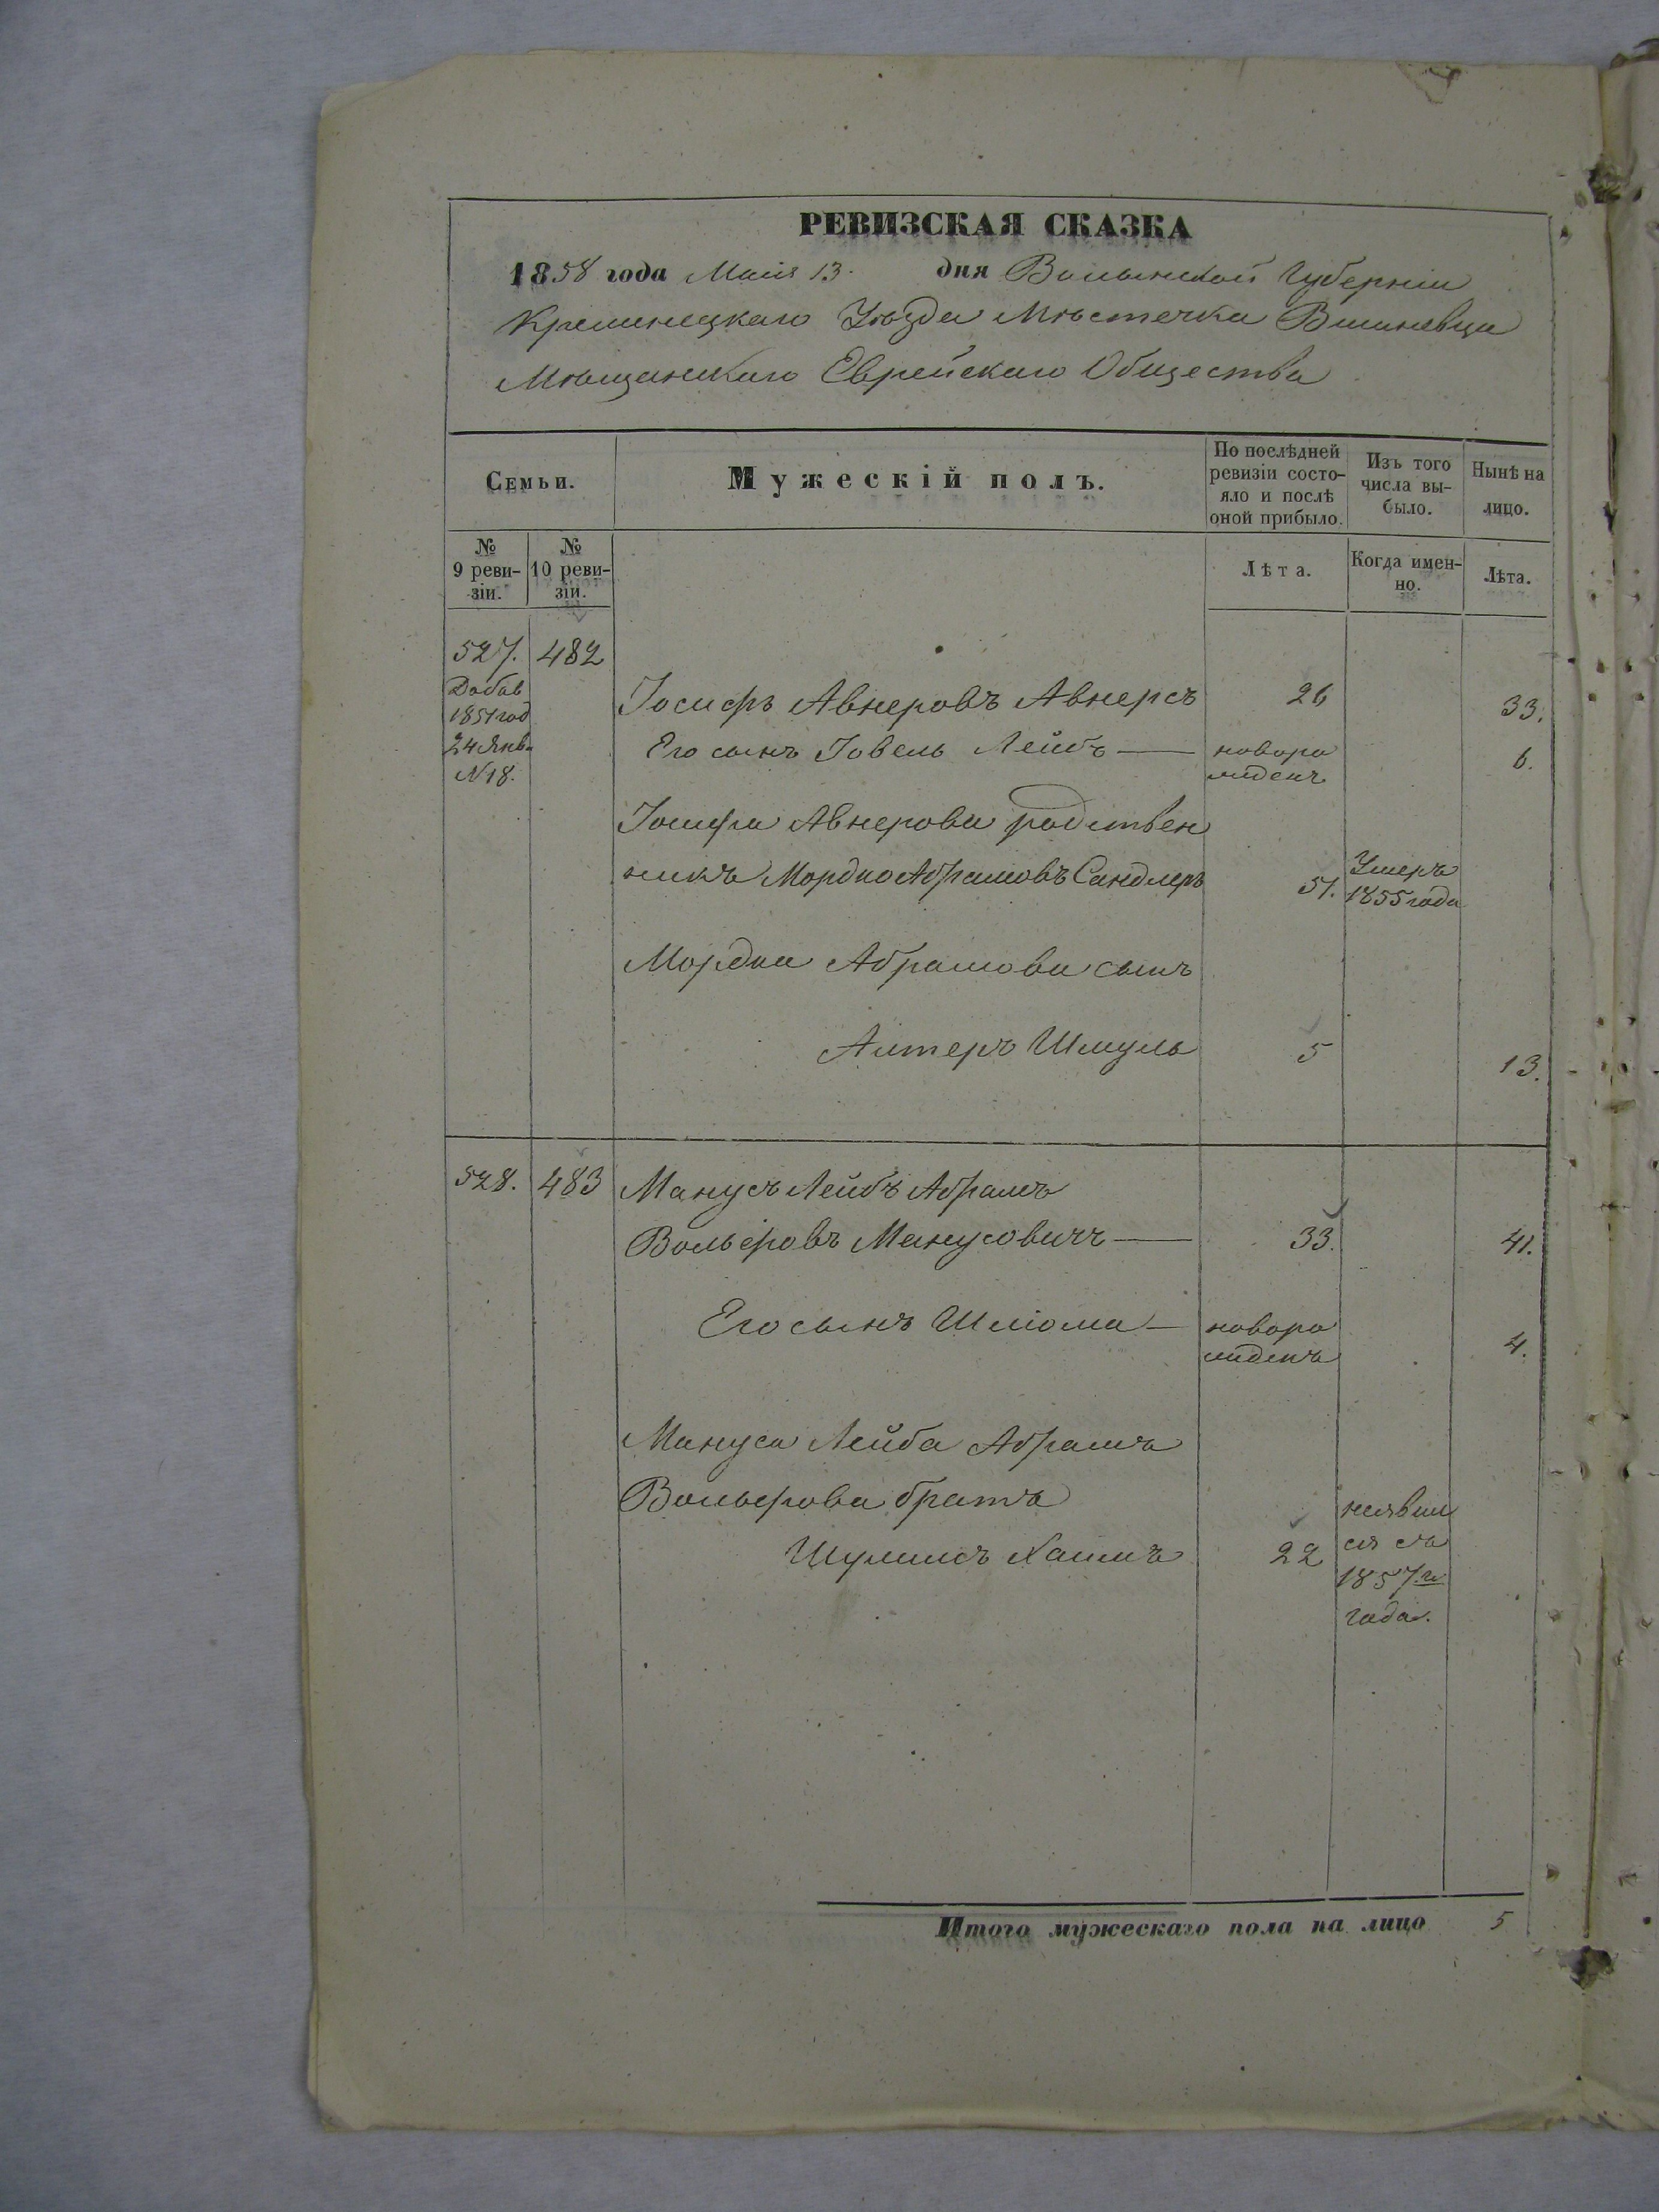 РЕВИЗСКАЯ СКАЗКА
1858 года Маія 13. дня Волынской Губерніи
Кременецкаго Уѣзда Мѣстечка Вишневца
Мѣщанскаго Еврейскаго Общества
Семьи.
Мужескій полъ.
По послѣдней
ревизіи состо-
яло и послѣ
оной прибыло.
Изъ того
числа вы-
было.
Нынѣ на
лицо.
№
9 реви-
зіи.
№
10 реви-
зіи.
Лѣта.
Когда имен-
но.
Лѣта.
527. 482
Добав
1851 год
24 Янв.
N 18.
Іосифъ Авнеровъ Авнерсъ 26 33.
Его сынъ Іовель Лейбъ — новоро
жденъ 6.
Іосифа Авнерова родствен
никъ Мордко Абрамовъ Сандлеръ 51. Умеръ
1855 года
Мордка Абрамова сынъ
Алтеръ Шмуль 5 13.
528. 483 Манусъ Лейбъ Абрамъ
Вольфовъ Манусовичъ — 33. 41.
Его сынъ Шліома — новоро
жденъ 4.
Мануса Лейба Абрама
Вольфова братъ
Шулимъ Хаимъ 22 неявил
ся съ
1857.го
года.
Итого мужескаго пола на лицо 5